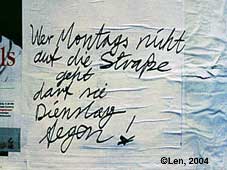 Wer Montags nicht
auf die Straße
geht
darf sie
Dienstag
fegen!
©Len, 2004